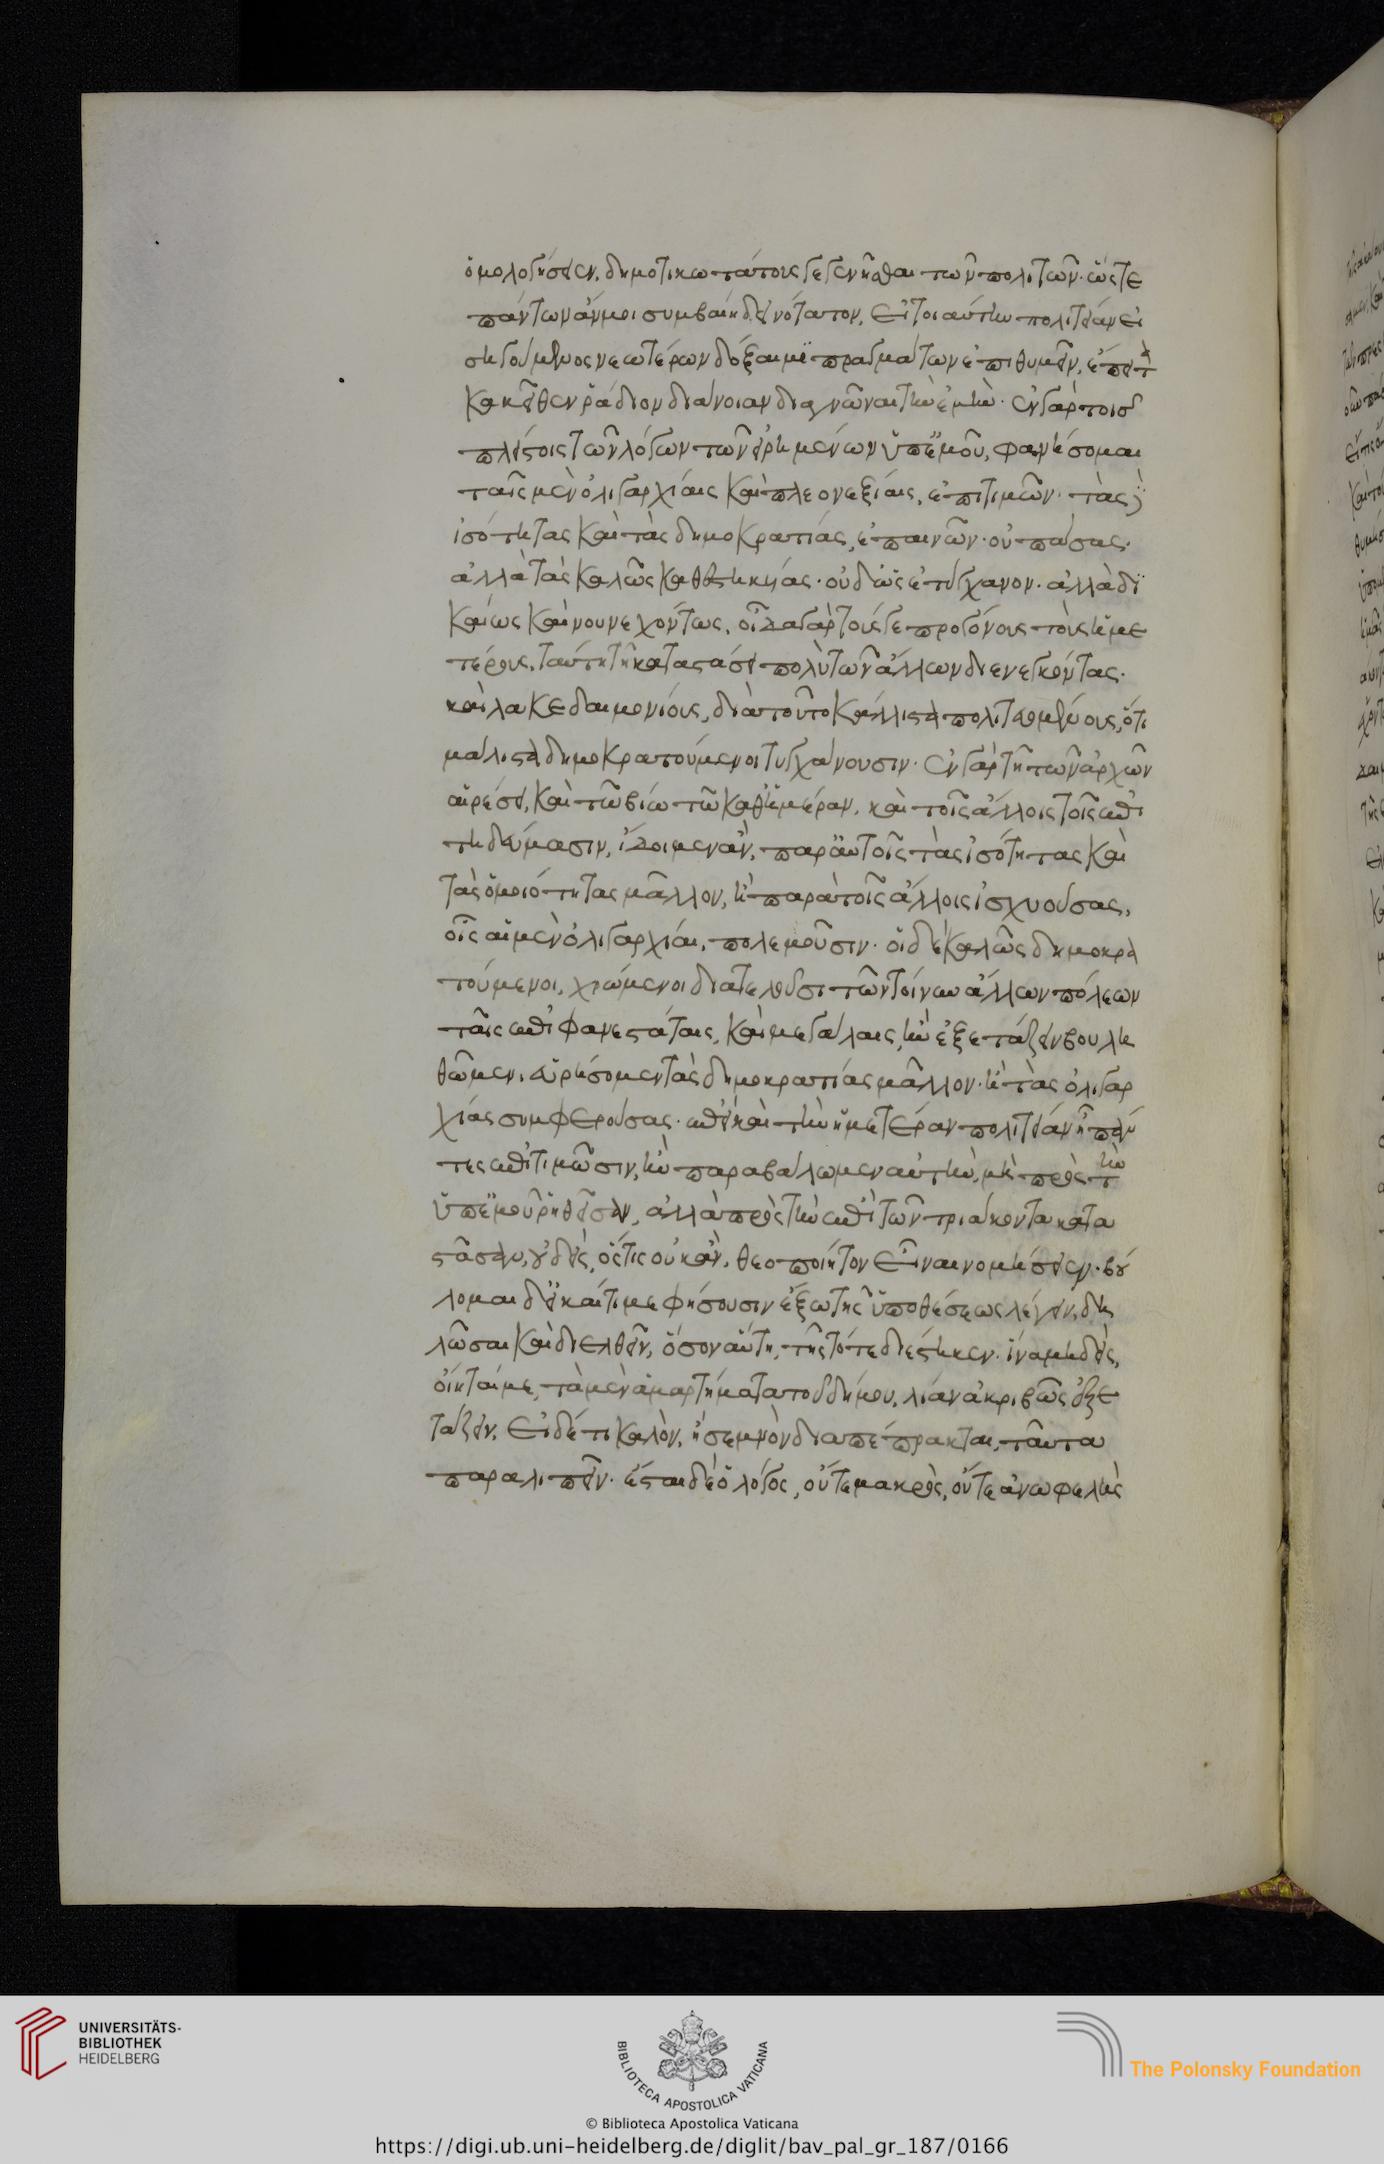 ὁμολογήσειεν, δημοτικωτάτους γεγενῆσθαι τῶν πολιτῶν· ὥστε
πάντων ἄν μοι συμβαίη δεινότατον, εἰ τοιαύτην πολιτείαν εἰ
σηγούμενος νεωτέρων δόξαιμι πραγμάτων ἐπιθυμεῖν, ἔπειτα
κακεῖθεν ῥάδιον διάνοιαν διαγνῶναι τὴν ἐμὴν· ἐν γὰρ τοῖς
πλείστοις τῶν λόγων τῶν εἰρημένων ὑπ' ἐμοῦ, φανήσομαι
ταῖς μὲν ὀλιγαρχίαις καὶ πλεονεξίαις, ἐπιτιμῶν· τὰς δ'
ἰσότητας καὶ τὰς δημοκρατίας, ἐπαινῶν· οὐ πάσας·
ἀλλὰ τὰς καλῶς καθεστηκυίας· οὐδ' ὡς ἐτύγχανον· ἀλλὰ δι
καίως καὶ νουνεχόντως, οἶδα γὰρ τούς γε προγόνους τοὺς ἡμε
τέρους, ταύτῃ τῇ καταστάσει πολὺ τῶν ἄλλων διενεγκόντας·
καὶ λακεδαιμονίους, διὰ τοῦτο κάλλιστα πολιτευομένους, ὅτι
μάλιστα δημοκρατούμενοι τυγχάνουσιν· ἐν γὰρ τῇ τῶν ἀρχῶν
αἱρέσει, καὶ τῷ βίω τῷ καθ' ἡμέραν, καὶ τοῖς ἄλλοις τοῖς ἐπι
τηδεύμασιν, ἴδοιμεν ἂν, παρ' αὐτοῖς τὰς ἰσότητας καὶ
τὰς ὁμοιότητας μᾶλλον, ἢ παρὰ τοῖς ἄλλοις ἰσχυούσας,
οἷς αἱ μὲν ὀλιγαρχίαι, πολεμοῦσιν· οἱ δὲ καλῶς δημοκρα
τούμενοι, χρώμενοι διατελοῦσι τῶν τοίνυν ἄλλων πόλεων
ταῖς ἐπιφανεστάταις, καὶ μεγάλαις, ἢν ἐξετάζειν βουλη
θῶμεν, εὑρήσομεν τὰς δημοκρατίας μᾶλλον· ἢ τὰς ὀλιγαρ
χίας συμφερούσας· ἐπεὶ καὶ τὴν ἡμετέραν πολιτείαν ᾗ πάν
τες ἐπιτιμῶσιν, ἢν παραβάλωμεν αὐτὴν, μὴ πρὸς τὴν
ὑπ' ἐμοῦ ῥηθεῖσαν, ἀλλὰ πρὸς τὴν ἐπὶ τῶν τριάκοντα κατα
στᾶσαν, οὐδεὶς, ὅστις οὐκ ἂν, θεοποίητον εἶναι νομήσειεν· βού
λομαι δ' εἰ καί τι με φήσουσιν ἔξω τῆς ὑποθέσεως λέγειν, δη
λῶσαι καὶ διελθεῖν, ὅσον αὕτη, τῆς τότε διέστηκεν· ἵνα μηδεὶς,
οἴηταί με, τὰ μὲν ἁμαρτήματα τοῦ δήμου, λίαν ἀκριβῶς ἐξε
τάζειν, εἰ δέ τι καλὸν, ἢ σεμνὸν διαπέπρακται, ταῦτα
παραλιπεῖν· ἔσται δὲ ὁ λόγος, οὔτε μακρὸς, οὔτε ἀνωφελὴς
UNIVERSITÄTS-
BIBLIOTHEK
HEIDELBERG
BIBLIOTECA APOSTOLICA VATICANA
The Polonsky Foundation
© Biblioteca Apostolica Vaticana
https://digi.ub.uni-heidelberg.de/diglit/bav_pal_gr_187/0166